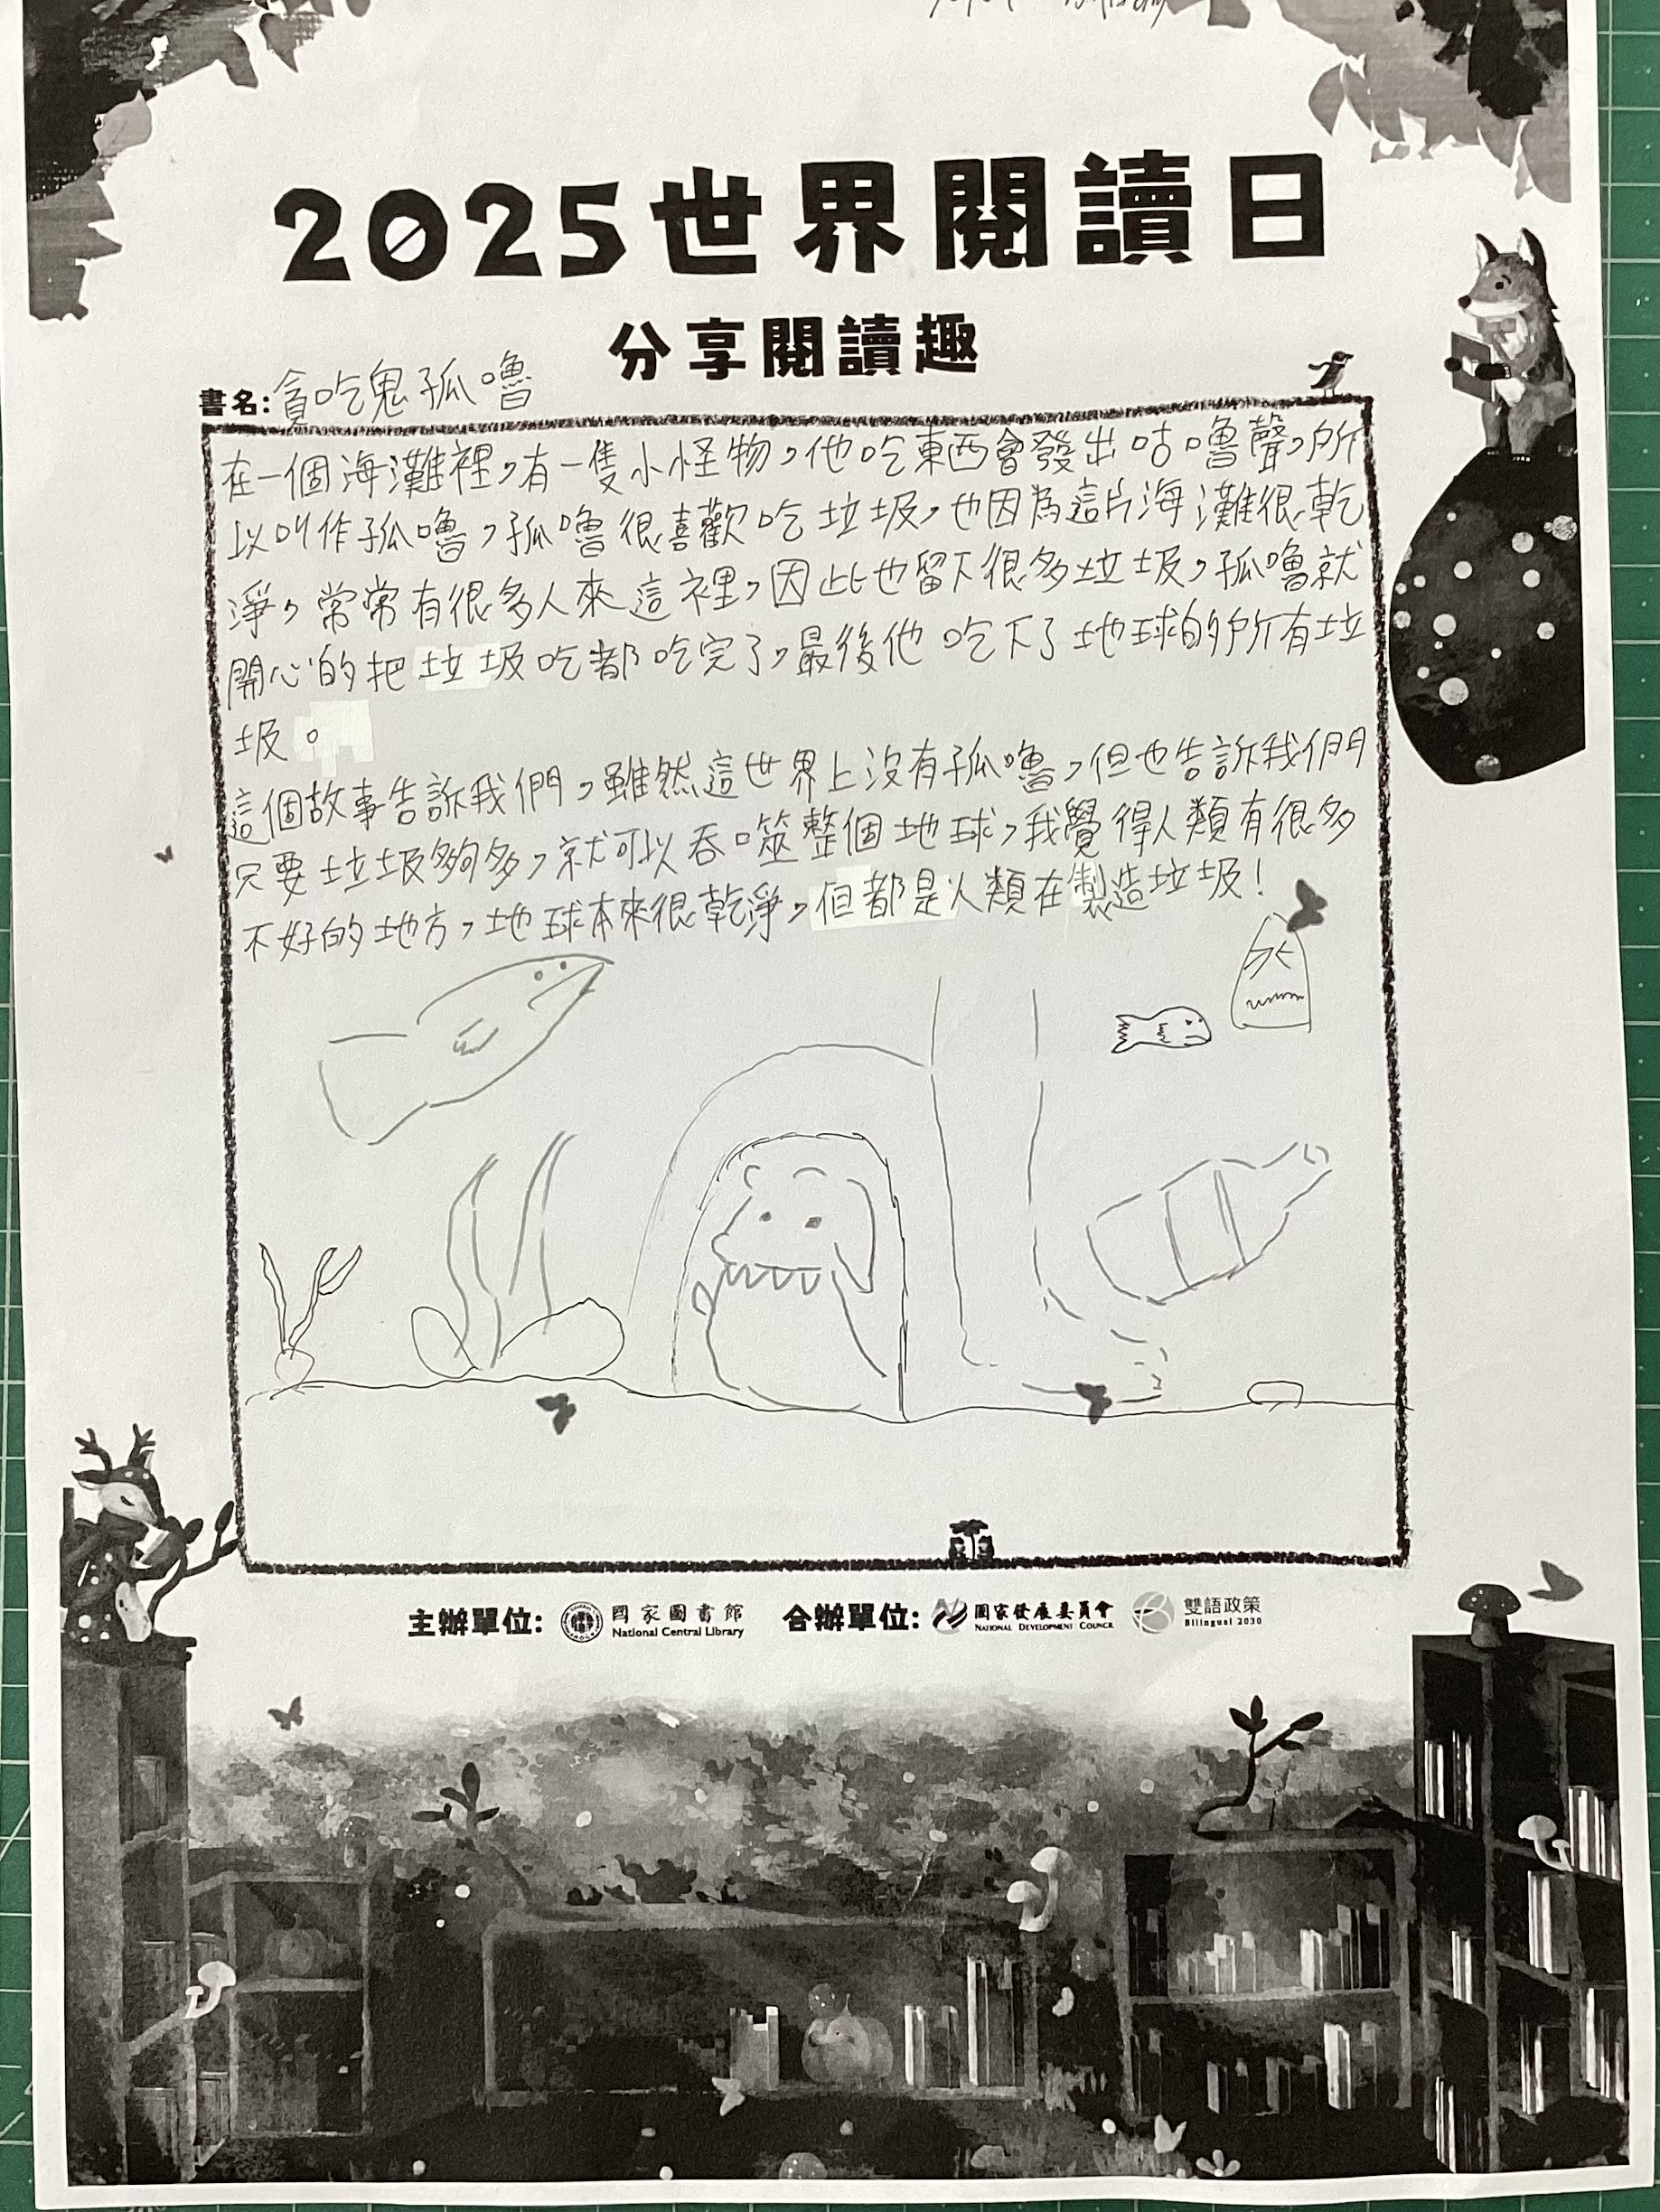 2025世界閱讀日
分享閱讀趣
書名:貪吃鬼孤嚕
在一個海灘裡,有一隻小怪物,他吃東西會發出咕嚕聲,所
以叫作孤嚕,孤嚕很喜歡吃垃圾,也因為這片海灘很乾
淨,常常有很多人來這裡,因此也留下很多垃圾,孤嚕就
開心的把垃圾吃都吃完了,最後他吃下了地球的所有垃
圾。
這個故事告訴我們,雖然這世界上沒有孤嚕,但也告訴我們
只要垃圾夠多,就可以吞噬整個地球,我覺得人類有很多
不好的地方,地球本來很乾淨,但都是人類在製造垃圾!
主辦單位: 國家圖書館 合辦單位: 國家發展委員會 雙語政策
National Central Library NATIONAL DEVELOPMENT COUNCIL Bilingual 2030